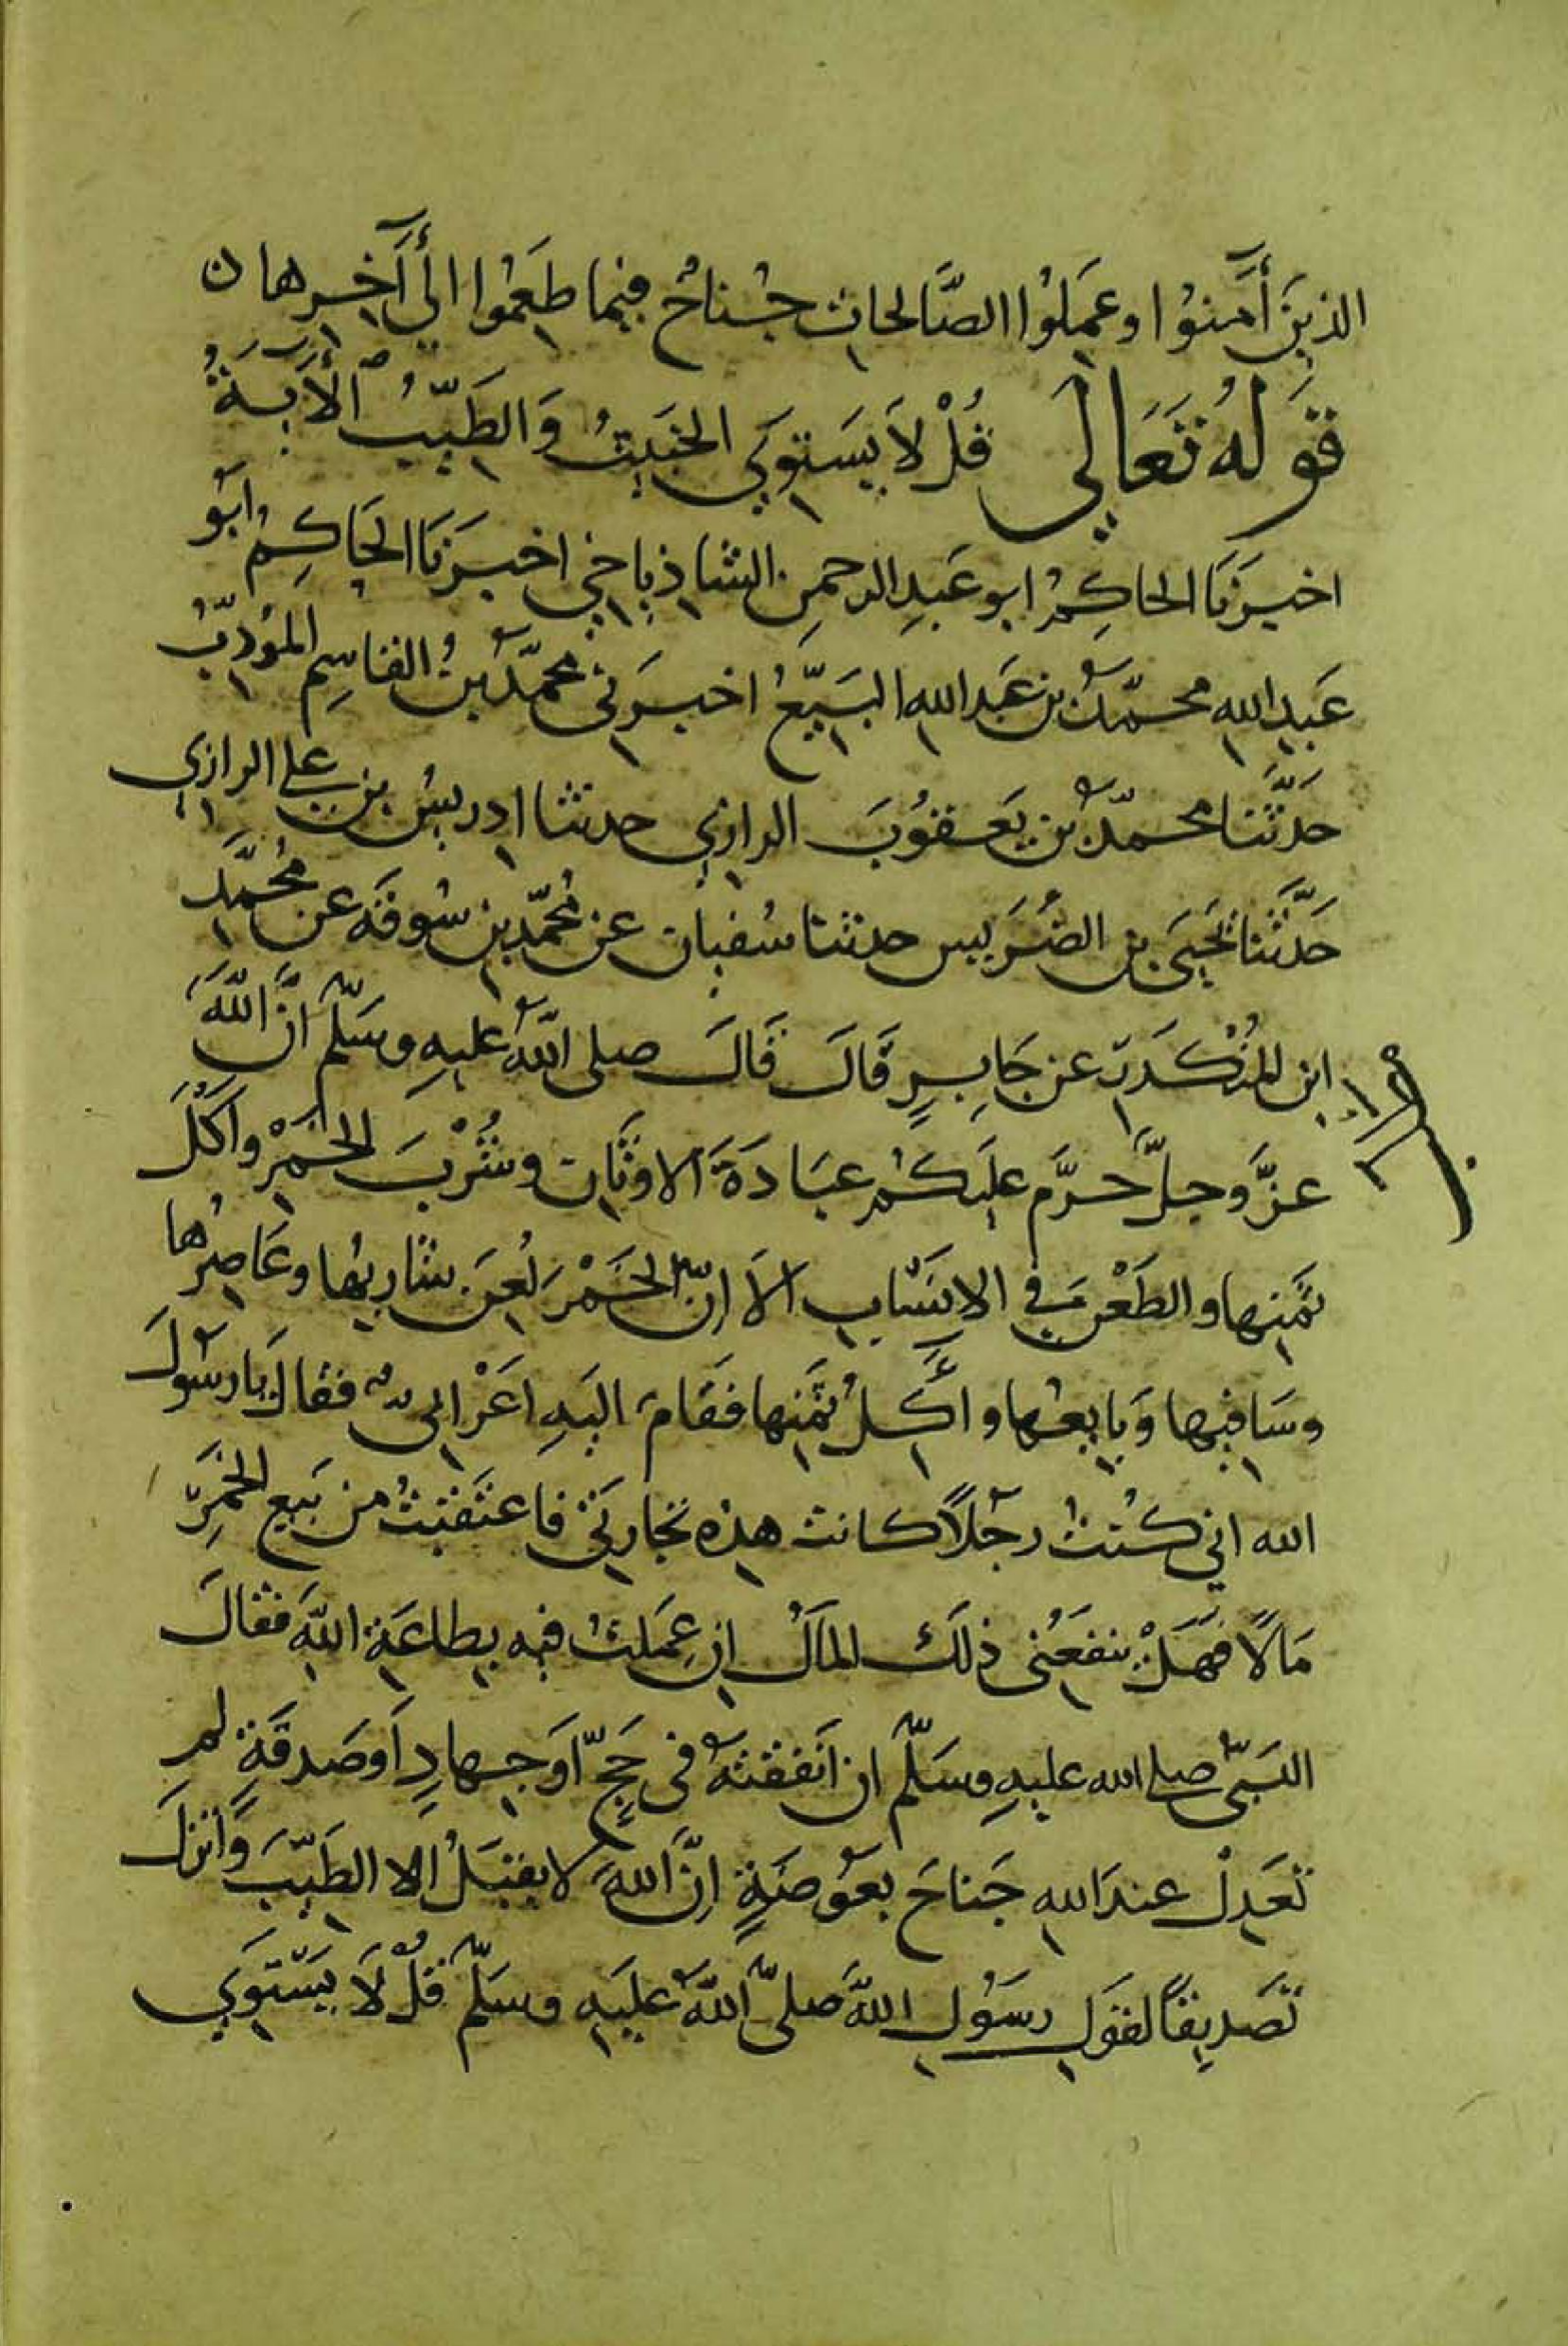 الذِينَ أٓمَنُوا وعَمِلُوا الصَّالحاتِ جُنَاحٌ فيما طَعِمُوا الي أٓخِرِها ن
قَولهُ تَعَالي قُلْ لاَ يَستَوِي الخَبيثُ وَالطَيِّبُ الأٓيَةُ
اخبرَنَا الحاكِمُ ابو عَبدِ الرحمن الشاذياخي اخبرَنَا الحَاكِمُ ابُو
عَبدِ الله محمّدُ بن عَبد الله البَيِّعُ اخبرَنى محمّدُ بنُ القاسِمِ المُؤدِّبُ
حَدَّثَنا محمّدُ بن يَعقوُبَ الرازي حدثنا ادريسُ بن علي الرازي
حَدَّثَنا يَحيَى بن الضُرَيس حدثنا سُفيان عن مُحمّد بن سُوقَه عن مُحمَّد
ابن المُنْكَدِر عن جَابِرٍ قَالَ قَالَ صلى اللهُ عليهِ وسَلّم انَّ اللَّهَ
عزَّ وجلَّ حرَّم عليَكُم عبَادَةَ الاوثَان وشُرْبَ الخَمْرِ واَكْلَ
ثَمَنِها والطَعْنَ في الانسَابِ اَلاَ انّ الخَمْرَ لُعِنَ شاربُها وعَاصِرُها
وسَاقيها وَبايعُها واٰكِلُ ثمَنِها فقَامَ اليَهِ اَعْرَابىٌّ فقالَ يا رسُولَ
الله اني كُنتُ رجُلاً كانت هذه تجارتي فاعتقَبتُ من بَيعِ الخَمرِ
مَالاً فهَلْ ينفعُنى ذلَك المَالُ ان عَمِلتُ فيه بِطاعَةِ اللّهَ فقالَ
النبَىُّ صلى الله عليهِ وسَلّم ان اَنفقتَهُ فى حَجٍّ اَو جِهادٍ اَو صَدقَةٍ لم
تَعدِلْ عندَ اللهِ جَناحَ بعَوُضَةٍ انَّ اللهَ لا يقبَلُ الا الطَيّبَ وَاَنزلَ
تَصديقاً لقوَلِ رسَوُلِ اللّهَ صَلىّ اللهُ عليَهِ وسَلّم قُلْ لاَ يَستَوِي